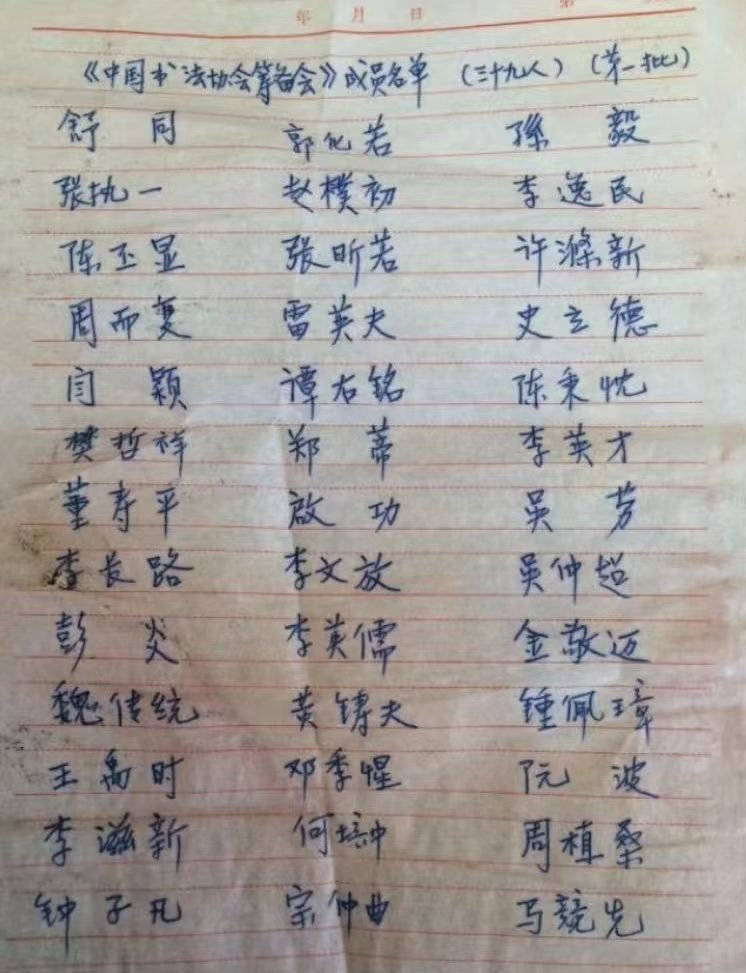 年 月 日 第
《中国书法协会筹备会》成员名单 (三十九人) (第一批)
舒同 郭化若 孫毅
张执一 赵樸初 李逸民
陈丕显 张昕若 许滌新
周而复 雷英夫 史立德
闫颖 谭右铭 陈秉忱
樊哲祥 郑蒂 李英才
董寿平 啟功 吴芳
李长路 李文放 吴仲超
彭炎 李英儒 金敬迈
魏传统 黄铸夫 锺佩璋
王禹时 邓季惺 阮波
李滋新 何培中 周植桑
钟子凡 宗仲曲 马競先